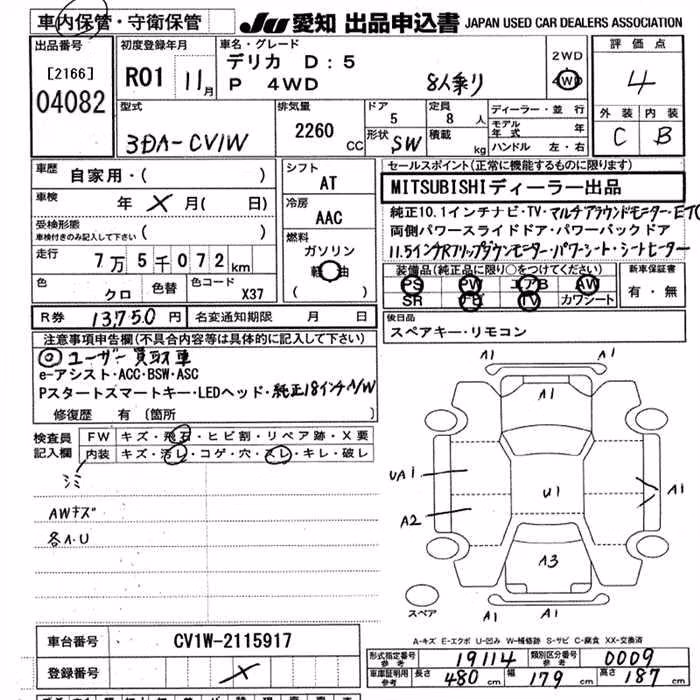 車内保管・守衛保管
JU 愛知 出品申込書 JAPAN USED CAR DEALERS ASSOCIATION
出品番号
[2166]
04082
初度登録年月
R01 11月
車名・グレード
デリカ D:5
P 4WD 8人乗り
2WD
4WD
評価点
4
外装 内装
C B
型式
3DA-CV1W
排気量
2260 CC
ドア
5
形状 SW
定員
8 人
積載 kg
ディーラー・並行
モデル年式 年
ハンドル 左・右
車歴
自家用・( )
車検
年 X 月( 日)
受検形態
車検付きのみ記入して下さい ( )
走行
7万5千072km
色 クロ 色替 色コード X37
シフト
AT
冷房
AAC
燃料
ガソリン
軽油
( )
セールスポイント(正常に機能するものに限ります)
MITSUBISHIディーラー出品
純正10.1インチナビ・TV・マルチアラウンドモニター・ETC
両側パワースライドドア・パワーバックドア
11.5インチRフリップダウンモニター・パワーシート・シートヒーター
装備品(純正品に限り○をつけてください)
PS PW エアB AW
SR ナビ TV カワシート
新車保証書
有・無
R券 13,750円 名変通知期限 月 日
後日品
スペアキー・リモコン
注意事項申告欄(不具合内容等は具体的に記入して下さい)
◎ユーザー買取車
e-アシスト・ACC・BSW・ASC
Pスタートスマートキー・LEDヘッド・純正18インチA/W
修復歴 有 (箇所 )
検査員記入欄
FW キズ・飛石・ヒビ割・リペア跡・X要
内装 キズ・汚レ・コゲ・穴・スレ・キレ・破レ
シミ
AWキズ
各A・U
A1 A1
A1
UA1
U1
A1
A2
A3
A1 A1
スペア
A-キズ E-エクボ U-凹み W-補修跡 S-サビ C-腐食 XX-交換済
車台番号 CV1W-2115917
登録番号 X
形式指定番号 参考 19114 類別区分番号 参考 0009
車庫証明用 参考 長さ 480cm 幅 179cm 高さ 187cm